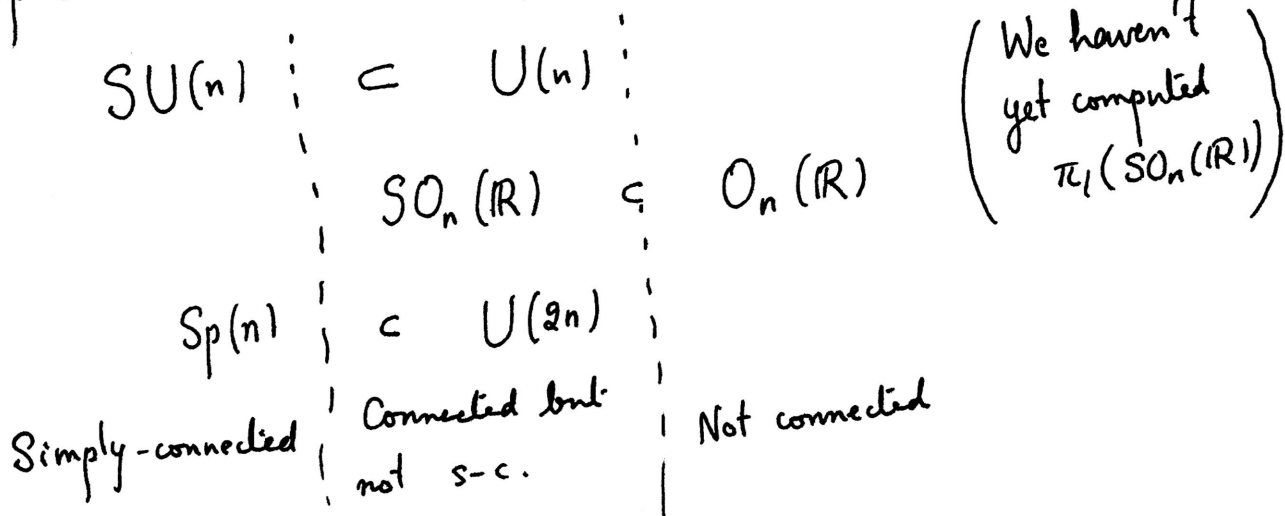 SU(n) ⊂ U(n)
(We haven't
yet computed
π₁(SOₙ(ℝ)))
SOₙ(ℝ) ⊂ Oₙ(ℝ)
Sp(n) ⊂ U(2n)
Simply-connected
Connected but
not s-c.
Not connected